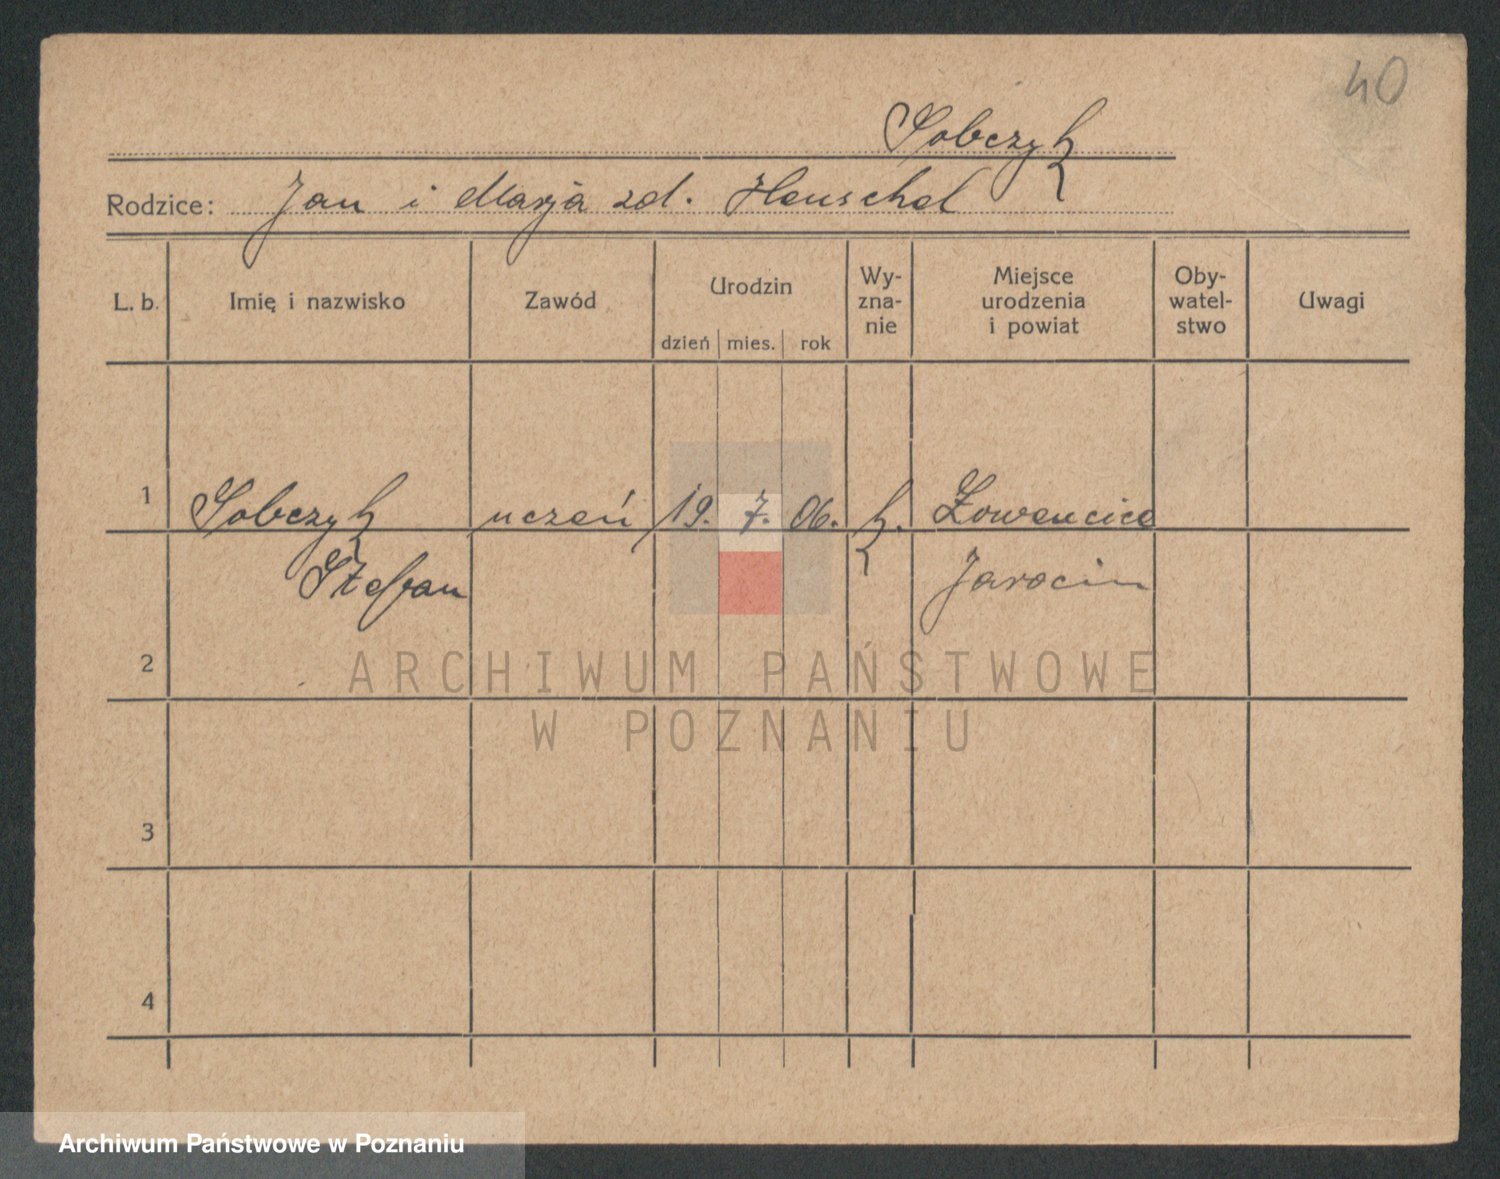 40
Sobczyk
Rodzice: Jan i Marja zd. Henschel
L. b. Imię i nazwisko Zawód Urodzin Wy-zna-nie Miejsce urodzenia i powiat Oby-watel-stwo Uwagi
dzień mies. rok
1 Sobczyk uczeń 19. 7. 06. k. Łowencice
Stefan Jarocin
2
ARCHIWUM PAŃSTWOWE
W POZNANIU
3
4
Archiwum Państwowe w Poznaniu